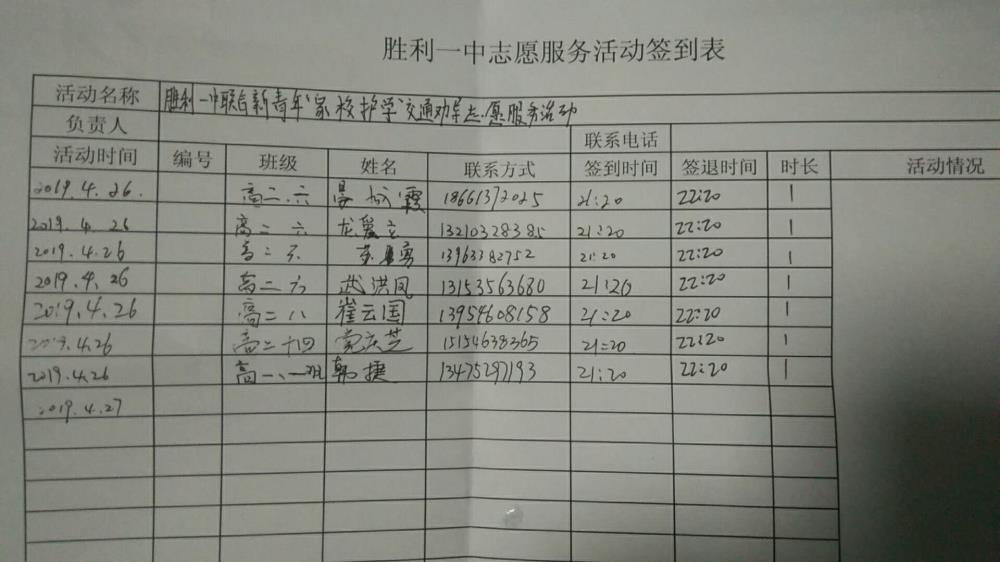 胜利一中志愿服务活动签到表
活动名称 胜利一中联合新青年"家校护学"交通劝导志愿服务活动
负责人 联系电话
活动时间 编号 班级 姓名 联系方式 签到时间 签退时间 时长 活动情况
2019.4.26. 高二.六 霞 18661372025 21:20 22:20 1
2019.4.26 高二六 龙爱 13210328385 21:20 22:20 1
2019.4.26 高二六 勇 13963382752 21:20 22:20 1
2019.4.26 高二六 武洪凤 13153563680 21:20 22:20 1
2019.4.26 高二八 崔云国 13954608158 21:20 22:20 1
2019.4.26 高二十四 党庆芝 15154638365 21:20 22:20 1
2019.4.26 高一、一班 韩捷 13475297193 21:20 22:20 1
2019.4.27